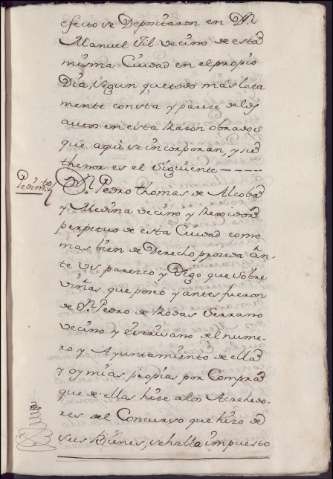 efecto se Depositaron en Dn
Manuel Gil vecino de esta
misma Ciudad en el propio
Dia, segun que todo mas lata
mente consta y parece de los
autos en esta Razon obrados
que aqui se incorporan, y su
thenor es el siguiente
Pedimto
Dn Pedro Thomas de Alcoba
y Medina vecino y Rexidor
perpetuo de esta Ciudad como
mas bien de Derecho proceda an
te Vs. parezco y Digo que sobre
viñas, que poseo y antes fueron
de Dn Pedro de Rodas Serrano
vecino y escrivano del nume
ro y Ayuntamiento de ella
y oy mias propias por Compra
que de ellas hice a los Acrehedo
res del Concurso que hizo de
sus Bienes, se halla impuesto